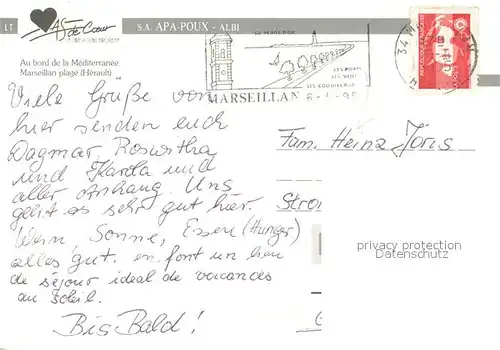 LT As de Cœur S.A. APA-POUX - ALBI
Au bord de la Méditerranée
Marseillan plage (Hérault)
LA PLAGE D'OR
LES PORTS
LES COQUILLAGES
MARSEILLAN
34 M
Viele Grüße von
hier senden euch
Dagmar Roswitha
und Karola und
aller Anhang. Uns
geht es sehr gut hier.
Wein, Sonne, Essen (Hunger)
alles gut. en font un lieu
de séjour ideal de vacances
au soleil.
Bis Bald!
Fam. Heinz Joris
Stro
privacy protection
Datenschutz